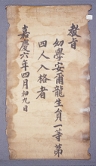 教旨
幼學安爾龍生員一等第
四人入格者
嘉慶六年四月初九日